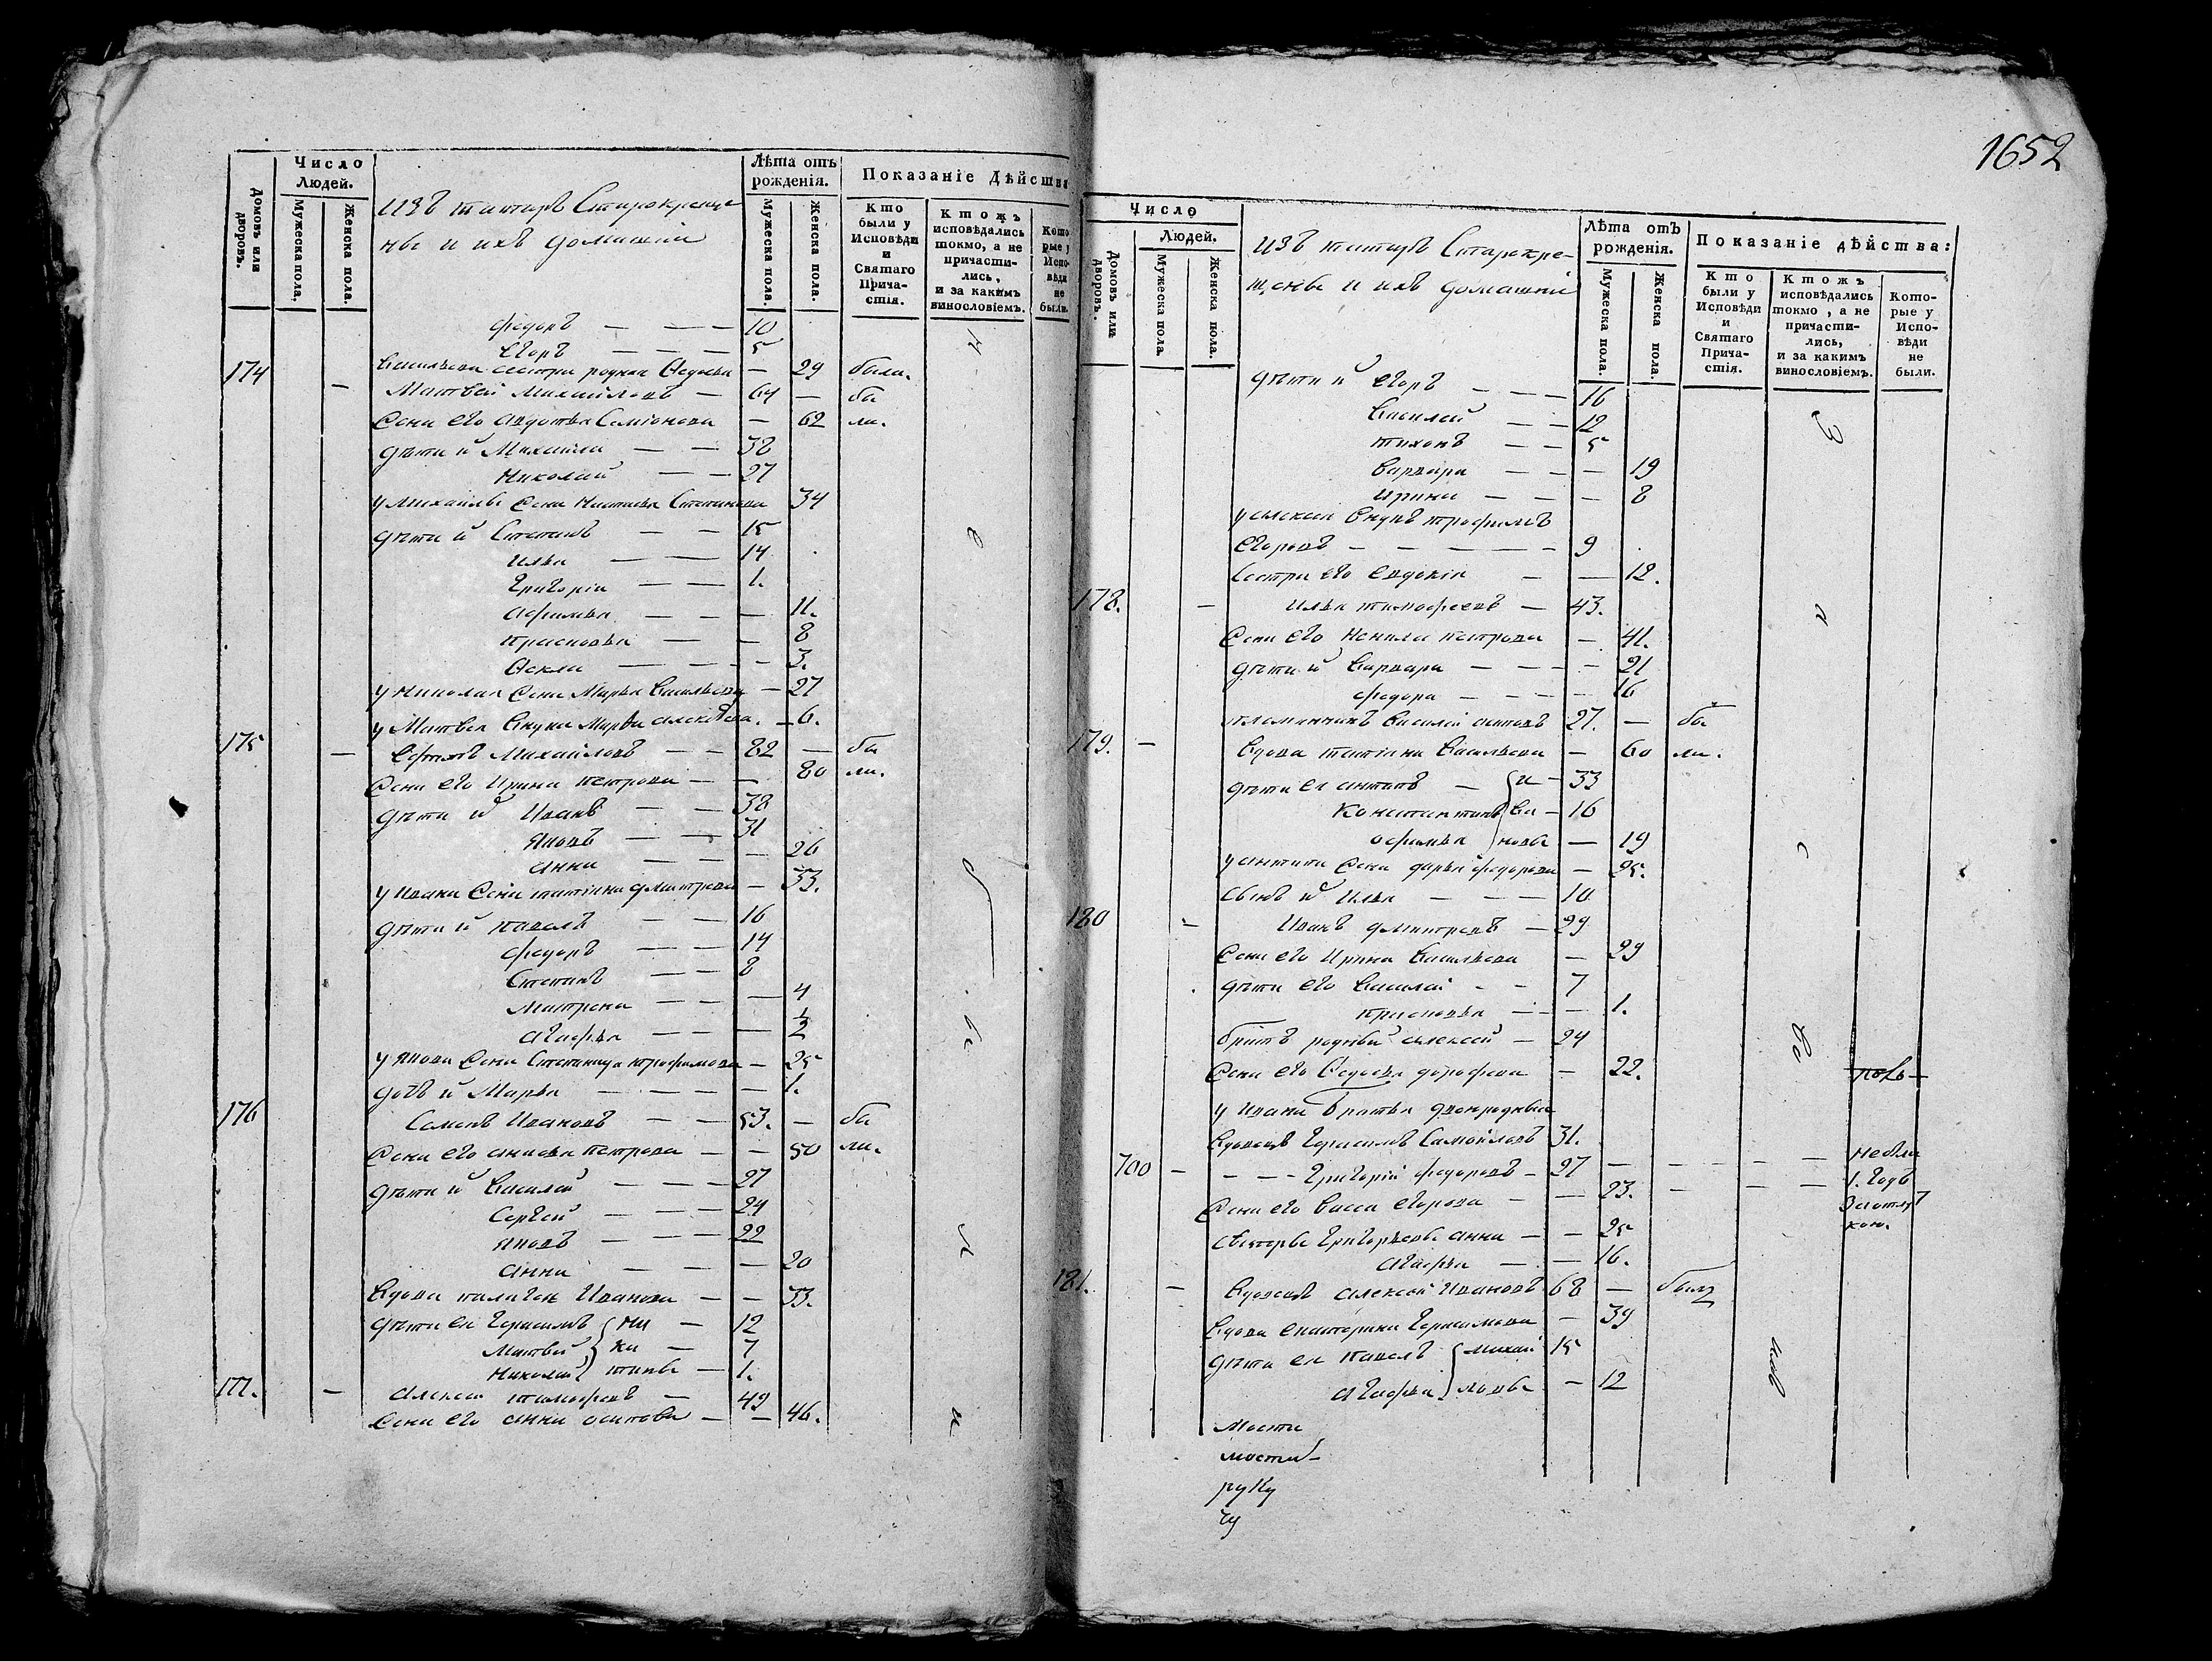 1652
Число Людей.
Домовъ или дворовъ.
Мужеска пола.
Женска пола.
изъ татаръ Старокреще
ны и ихъ домашніи
Лѣта отъ рожденія.
Мужеска пола.
Женска пола.
Показаніе Дѣйства
Кто были у Исповѣди и Святаго Причастія.
Ктожъ исповѣдались токмо, а не причастились, и за какимъ винословіемъ.
Которые у Исповѣди не были.
федоръ — — — 10
Егоръ — — — 5
Васильева сестра родная Федосья — 29 была.
174 — Матвей Михайловъ — 64 — бы
Жена его Авдотья Симіонова — 62 ли.
дѣти и Михаила — — 38
Николай — — 27
у Михайлы Жена Настасья Степанова 34
дѣти и Степанъ — — 15
Илья — — 14
Григорій — — 1.
Афимья — — — 11.
Прасковья — — 8
Фекла — — — 3.
у Николая Жена Марья Васильева — 27
у Матвея внука Марья — 6.
175 — Ефимъ Михайловъ — — 82 — бы
Жена его Ирина Петрова — — 80 ли.
дѣти и Иванъ — — 38
Яковъ — — 31
Анна — — — 26
у Ивана Жена татіана дмитрева — 33.
дѣти и павелъ — — 16
федоръ — — 14
Степанъ — — 8
Матрена — — — 4
Агафья — — — 1/2
у Якова Жена Степанида трофимова — 25
дочь и Марья — — — 1.
176 Семенъ Ивановъ — — 53. — бы
Жена его Анисья Петрова — — 50 ли.
дѣти и Василей — — — 27
Сергей — — — 24
Яковъ — — — 22
Анна — — — 20
Вдова палагея Иванова — — 33.
дѣти ея Герасимъ { ни — 12
Матвей } ки — 7
Николай тины — 1.
177. — Алексей тимофеевъ — 49
Жена его Анна осипова — — 46.
Число Людей.
Домовъ или дворовъ.
Мужеска пола.
Женска пола.
изъ татаръ Старокре-
щены и ихъ домашніи
Лѣта отъ рожденія.
Мужеска пола.
Женска пола.
Показаніе дѣйства:
Кто были у Исповѣди и Святаго Причастія.
Ктожъ исповѣдались токмо, а не причастились, и за какимъ винословіемъ.
Которые у Исповѣди не были.
дѣти и Егоръ — — — 16
Василей — — 12
тихонъ — — 5
варвара — — — 19
Ирина — — — 8
у алексея внукъ трофимъ
Егоровъ — — — — — 9
Сестра его Евдокіа — — 12.
178. — Илья тимофеевъ — 43.
Жена его Ненила петрова — 41.
дѣти и Варвара — — — — 21
федора — — — — 16
племянникъ Василей 27. — бы
179. — Вдова татіана Васильева — 60 ли.
дѣти ея антипъ — { И — 33
Константинъ { ва — 16
офимья } новы — 19
у антипа Жена дарья федорова — 25.
сынъ и Илья — — — 10
180 — Иванъ дмитревъ — 29
Жена его Ирина Васильева — 29
дѣти его Василей — — 7
прасковья — — — 1.
братъ родный алексей — 24
Жена его Федосья дорофеева — 22.
у Ивана братья двоюродныи
вдовецъ Герасимъ Самойловъ 31.
700 — — — — Григорій федоровъ — 27 — — — — — небыли
Жена его васса Егорова — — 23. — — — 1. годъ
сестры Григорьевы анна — — 25 За отлуч
Агафья — — 16. кою.
181. — Вдовецъ алексей Ивановъ 68 — былъ
Вдова екатерина Герасимова — 39
дѣти ея павелъ { михай 15
Агафья } ловы — 12
мости
мости
руку
чу